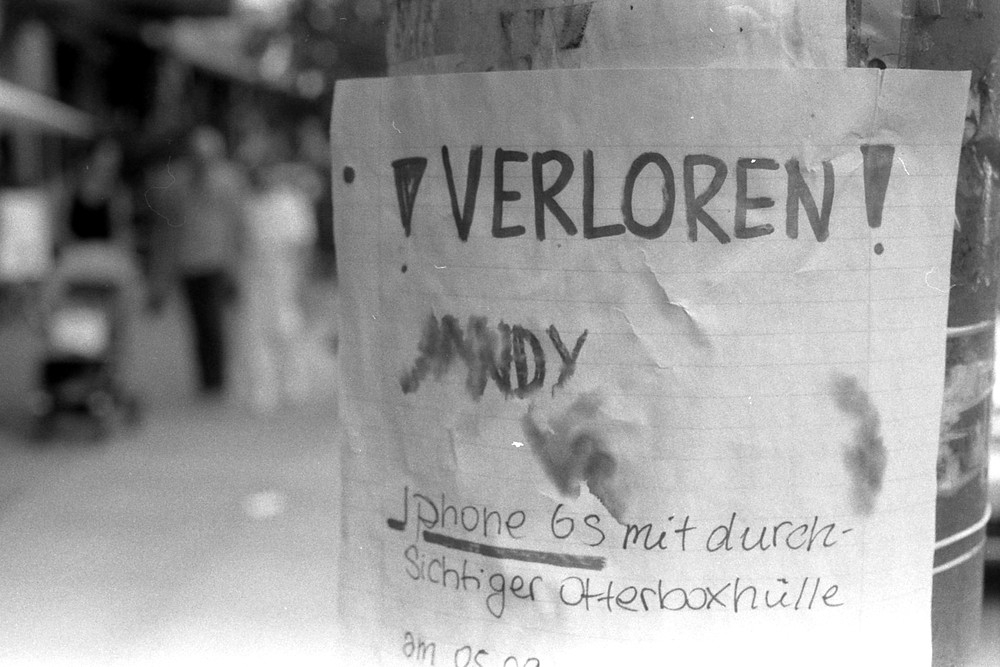 ! VERLOREN !
HANDY
Iphone 6S mit durch-
sichtiger Otterboxhülle
am 05.09